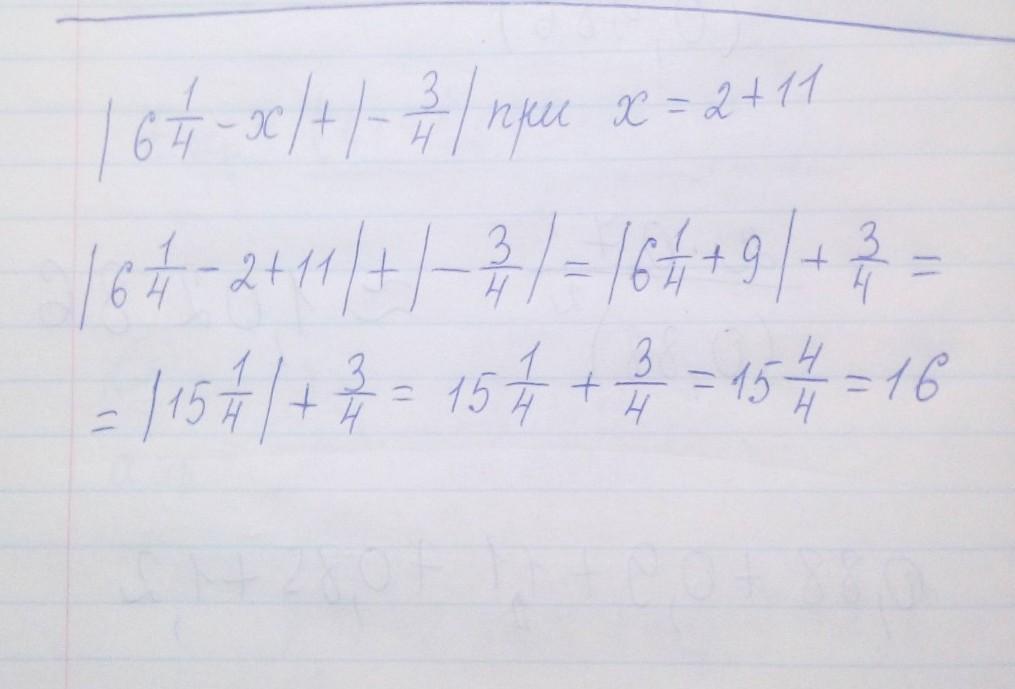 |6 1/4 - x| + |- 3/4| при x = 2+11
|6 1/4 - 2+11| + |- 3/4| = |6 1/4 + 9| + 3/4 =
= |15 1/4| + 3/4 = 15 1/4 + 3/4 = 15 4/4 = 16